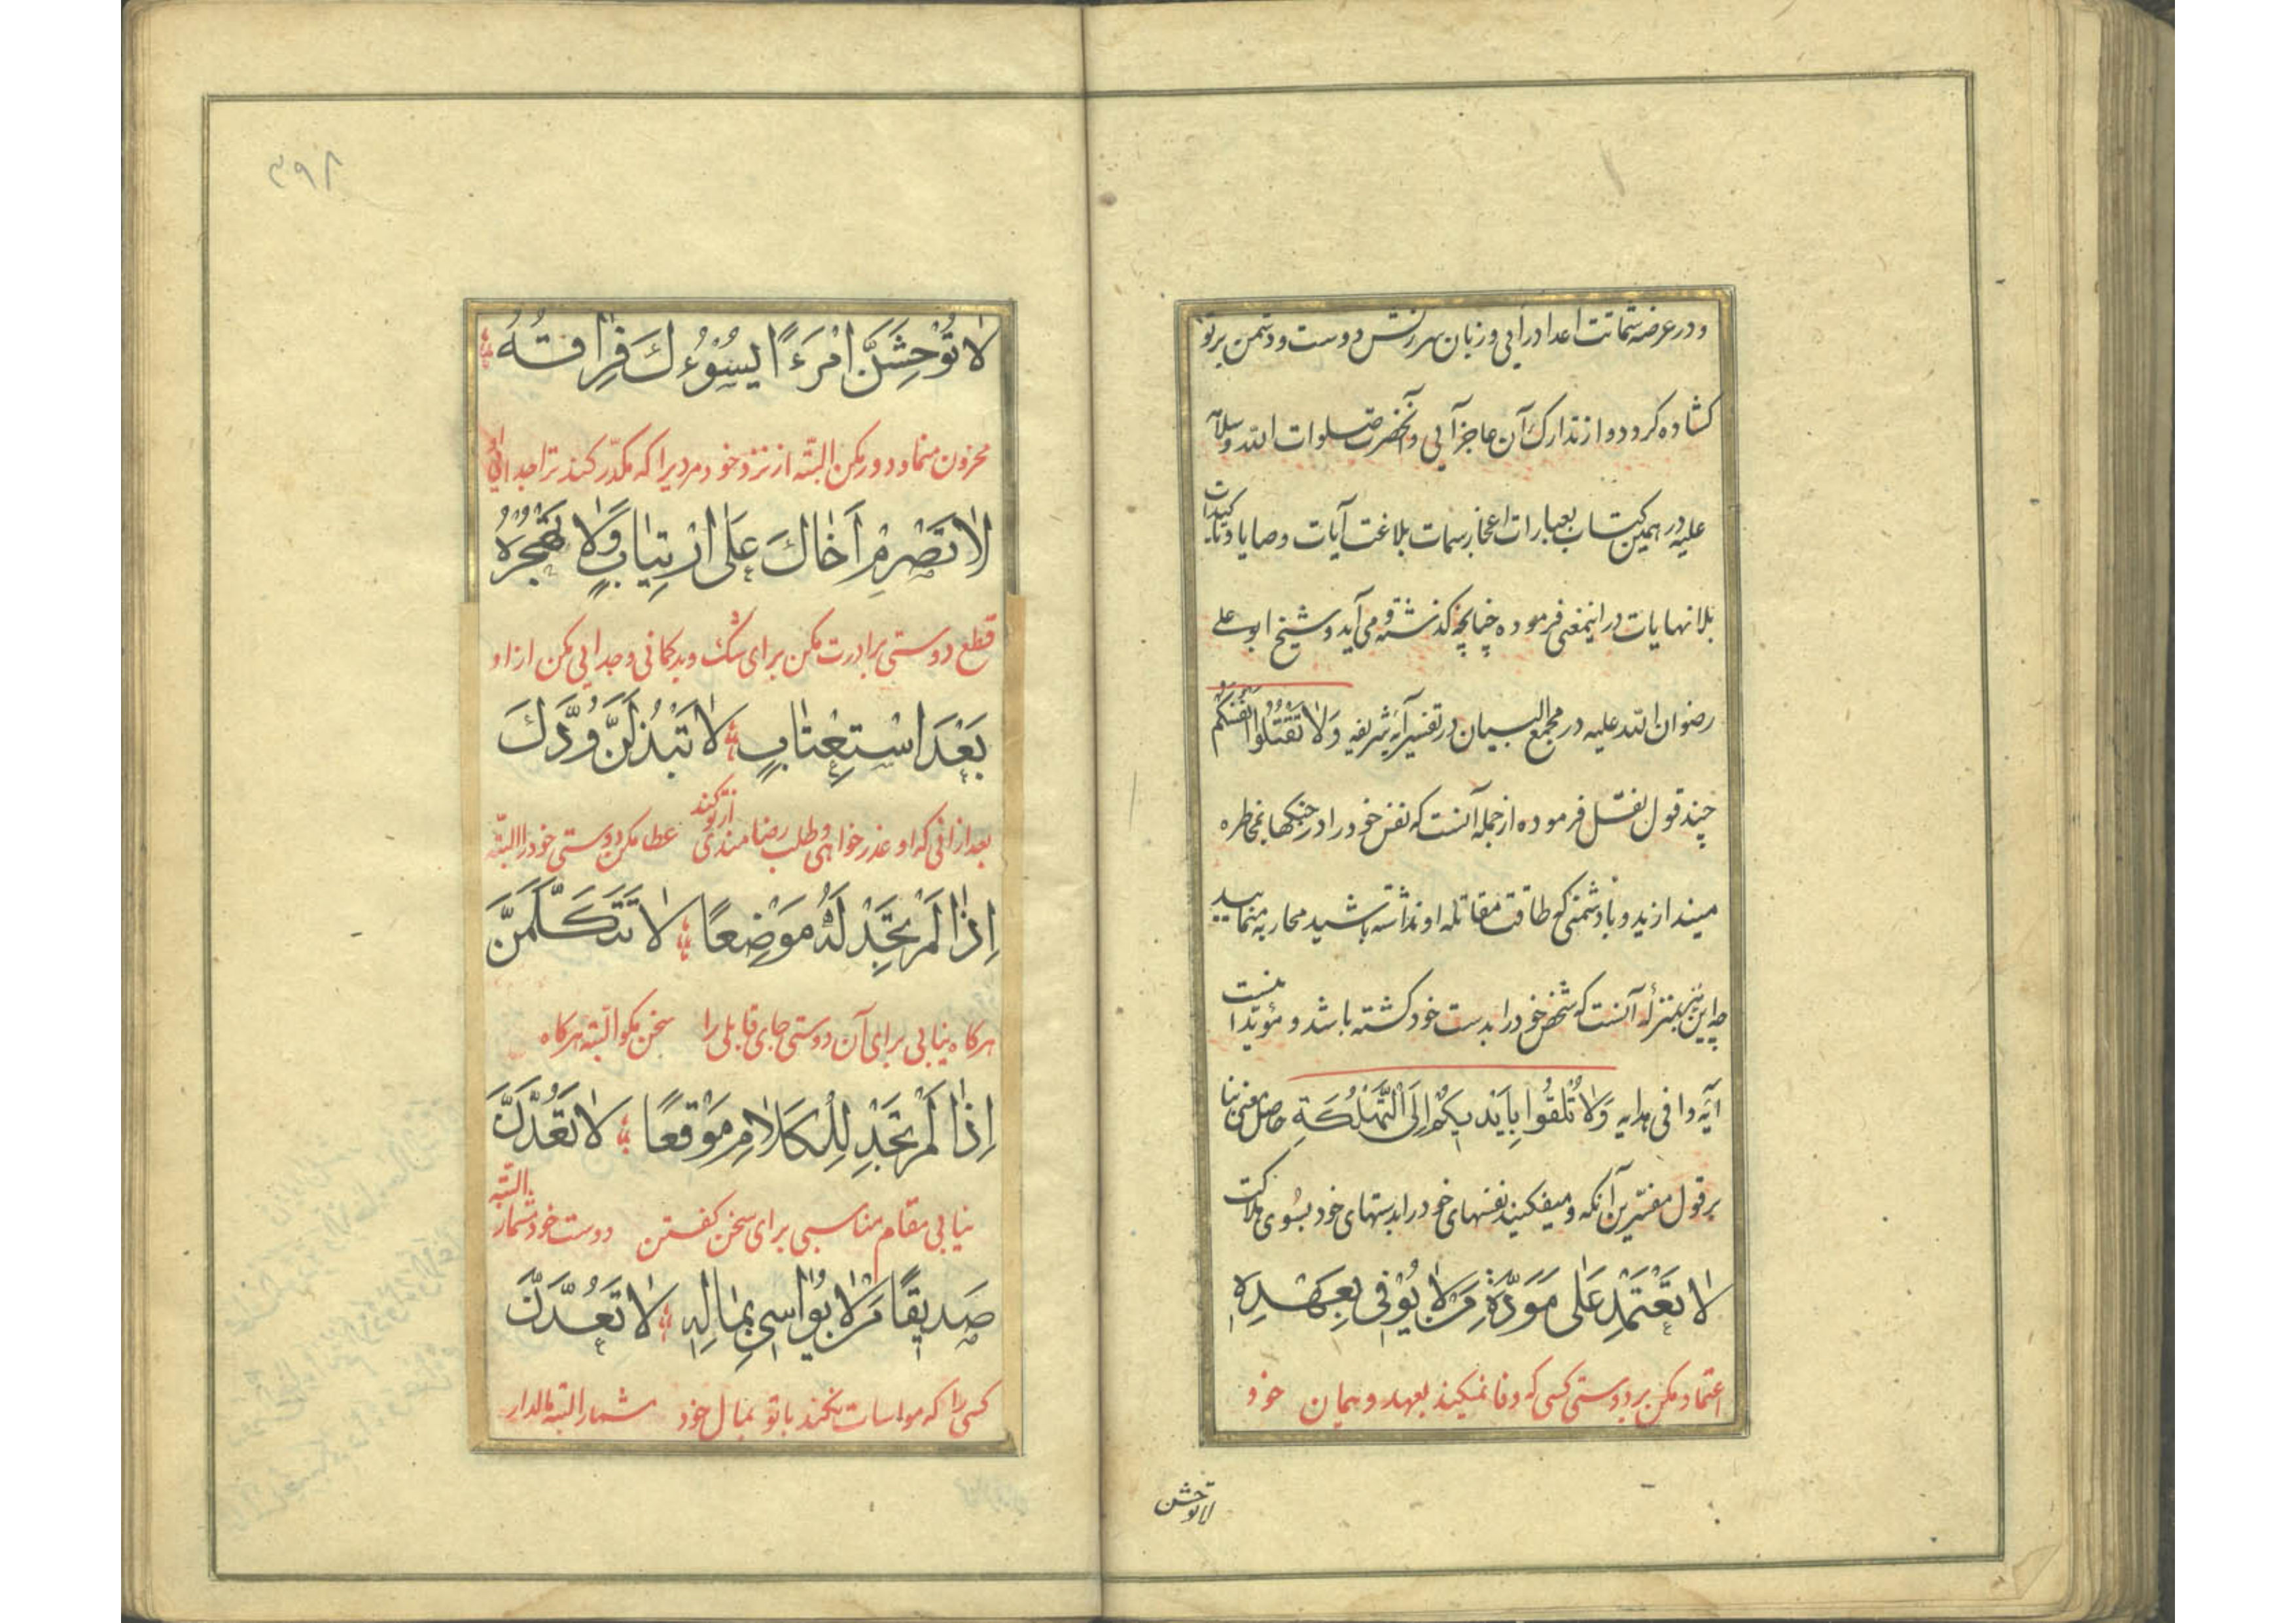 و در عرضه شماتت اعدا درآیی و زبان سرزنش دوست و دشمن بر تو
کشاده کرد و از تدارک آن عاجز آیی و آنحضرت صلوات الله و سلامه
علیه در همین کتاب بعبارات اعجاز سمات بلاغت آیات وصایا و تاکیدات
بلا نهایات در اینمعنی فرموده چنانچه کذشته و می آید و شیخ ابو علی
رضوان الله علیه در مجمع البیان در تفسیر آیه شریفه وَلَا تَقْتُلُوا اَنْفُسَكُمْ
چند قول نقل فرموده از جمله آنست که نفس خود را در جنکها بمخاطره
میندازید و با دشمنی که طاقت مقاتله او نداشته باشید محاربه منمایید
چه این نیز بمنزله آنست که شخص خود را بدست خود کشته باشد و مؤید اینست
آیه وافی هدایه وَلَا تُلْقُوا بِاَيْدِيكُمْ اِلَى التَّهْلُكَةِ حاصل معنی بنا
بر قول مفسرین آنکه و میفکنید نفسهای خود را بدستهای خود بسوی هلاکت
لَا تَعْتَمِدْ عَلٰى مَوَدَّةِ مَنْ لَا يُوْفِى بِعَهْدِهِ
اعتماد مکن بر دوستی کسی که وفا نمیکند بعهد و پیمان خود
لا توحشن
۳۹۸
لَا تُوْحِشَنَّ امْرَءًا يَسُوْءُكَ فِرَاقُهُ
محزون منما و دور مکن البته از نزد خود مردیرا که مکدر کند ترا جدائی او
لَا تَصْرِمْ اَخَاكَ عَلَى ارْتِيَابٍ وَلَا تَهْجُرْهُ
قطع دوستی برادرت مکن برای شک و بدکمانی و جدایی مکن از او
بَعْدَ اسْتِعْتَابٍ لَا تَبْذُلَنَّ وُدَّكَ
بعد از آنی که او عذر خواهی و طلب رضامندی از تو کند عطا مکن دوستی خود را البته
اِذَا لَمْ تَجِدْ لَهُ مَوْضِعًا لَا تَتَكَلَّمَنَّ
هرکاه نیابی برای آن دوستی جای قابلی را سخن مکو البته هرکاه
اِذَا لَمْ تَجِدْ لِلْكَلَامِ مَوْقِعًا لَا تَعُدَّنَّ
نیابی مقام مناسبی برای سخن کفتن دوست خود مشمار البته
صَدِيْقًا مَنْ لَا يُوَاسِى بِمَالِهِ لَا تَعُدَّنَّ
کسی را که مواسات نکند با تو بمال خود مشمار البته مالدار